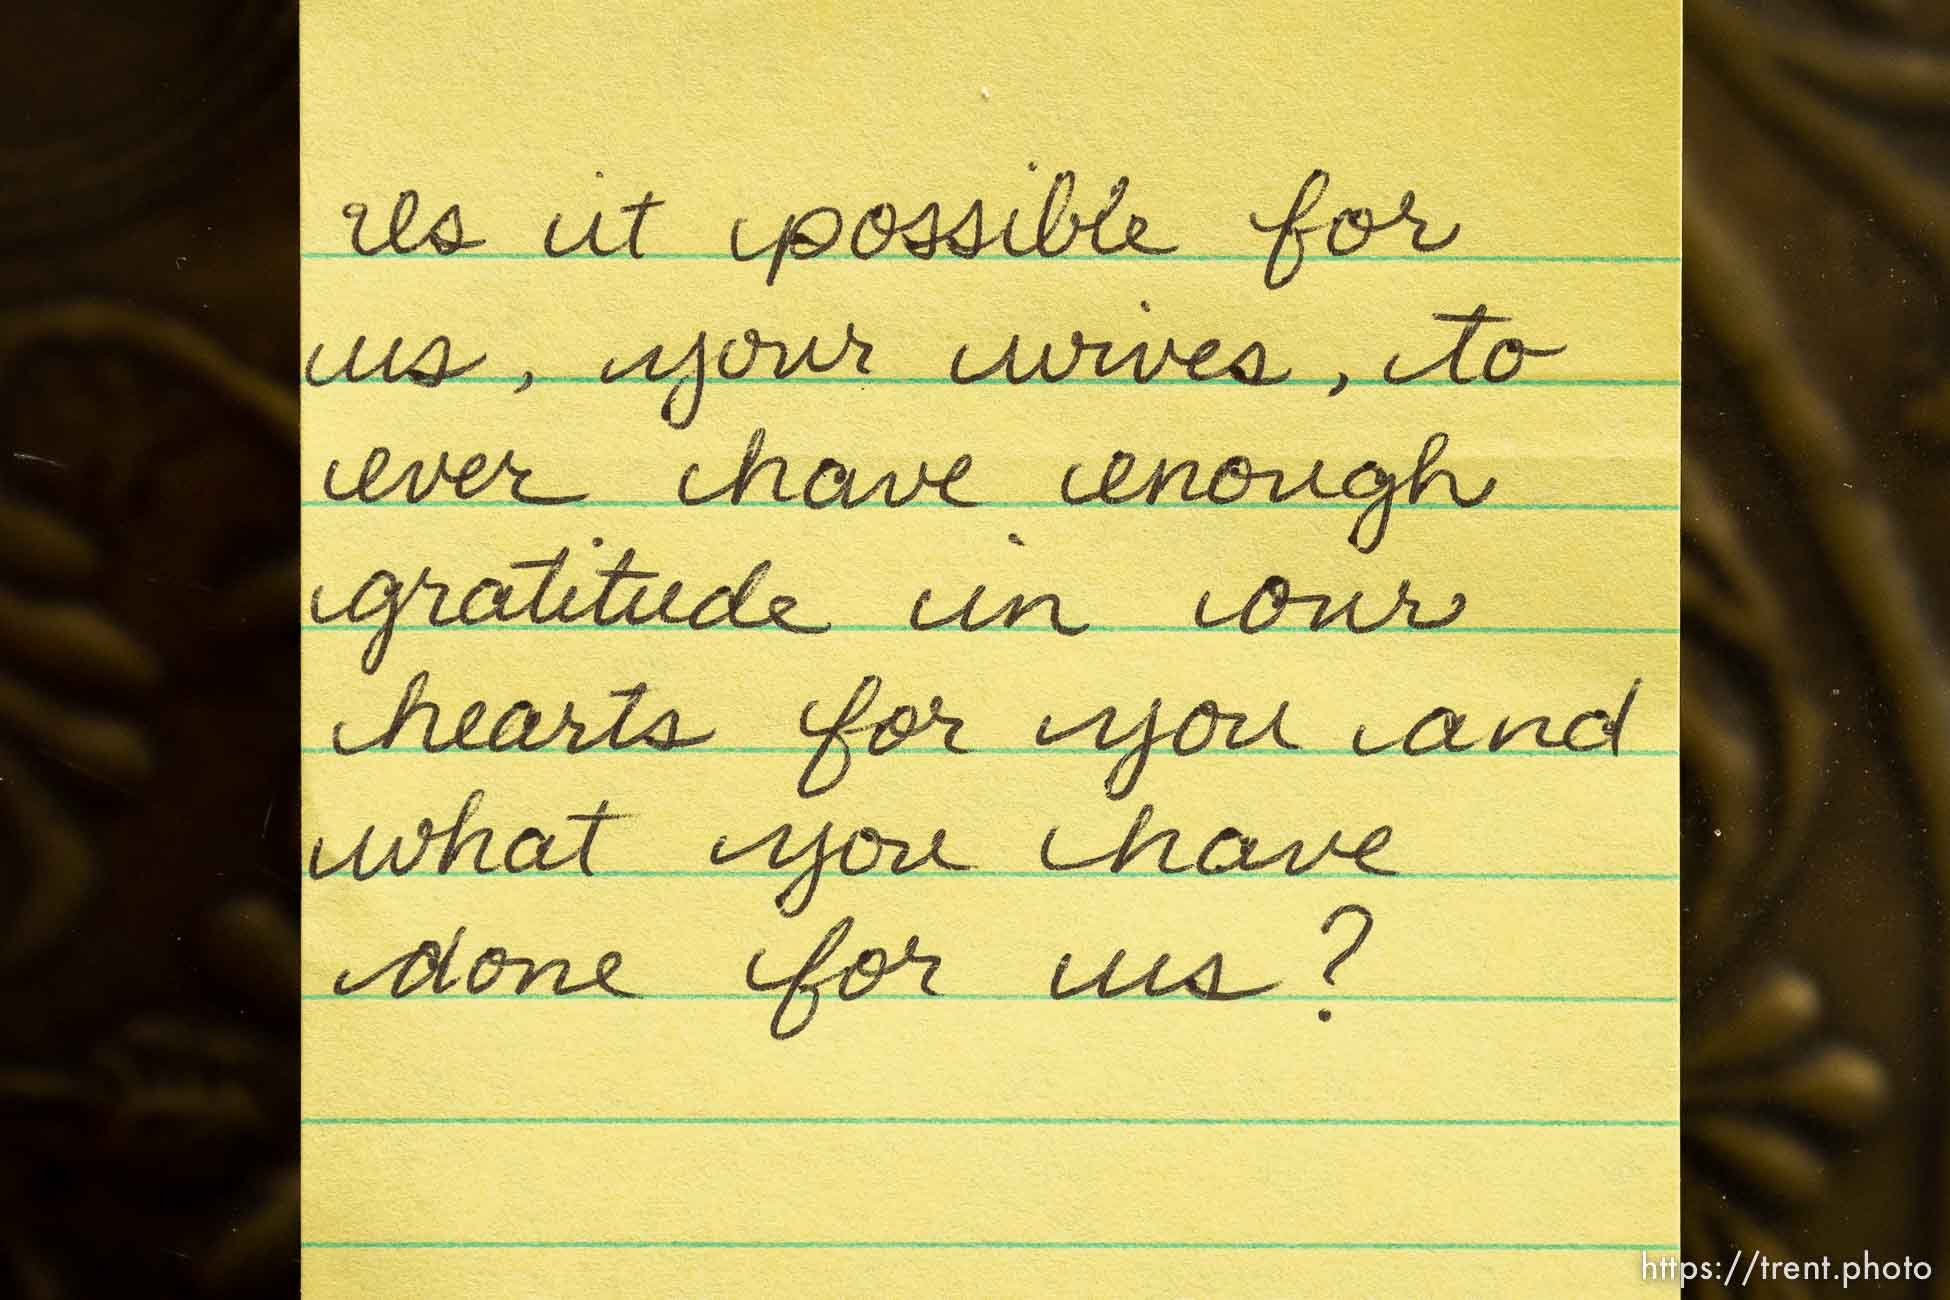 Is it possible for
us, your wives, to
ever have enough
gratitude in our
hearts for you and
what you have
done for us?
https://trent.photo